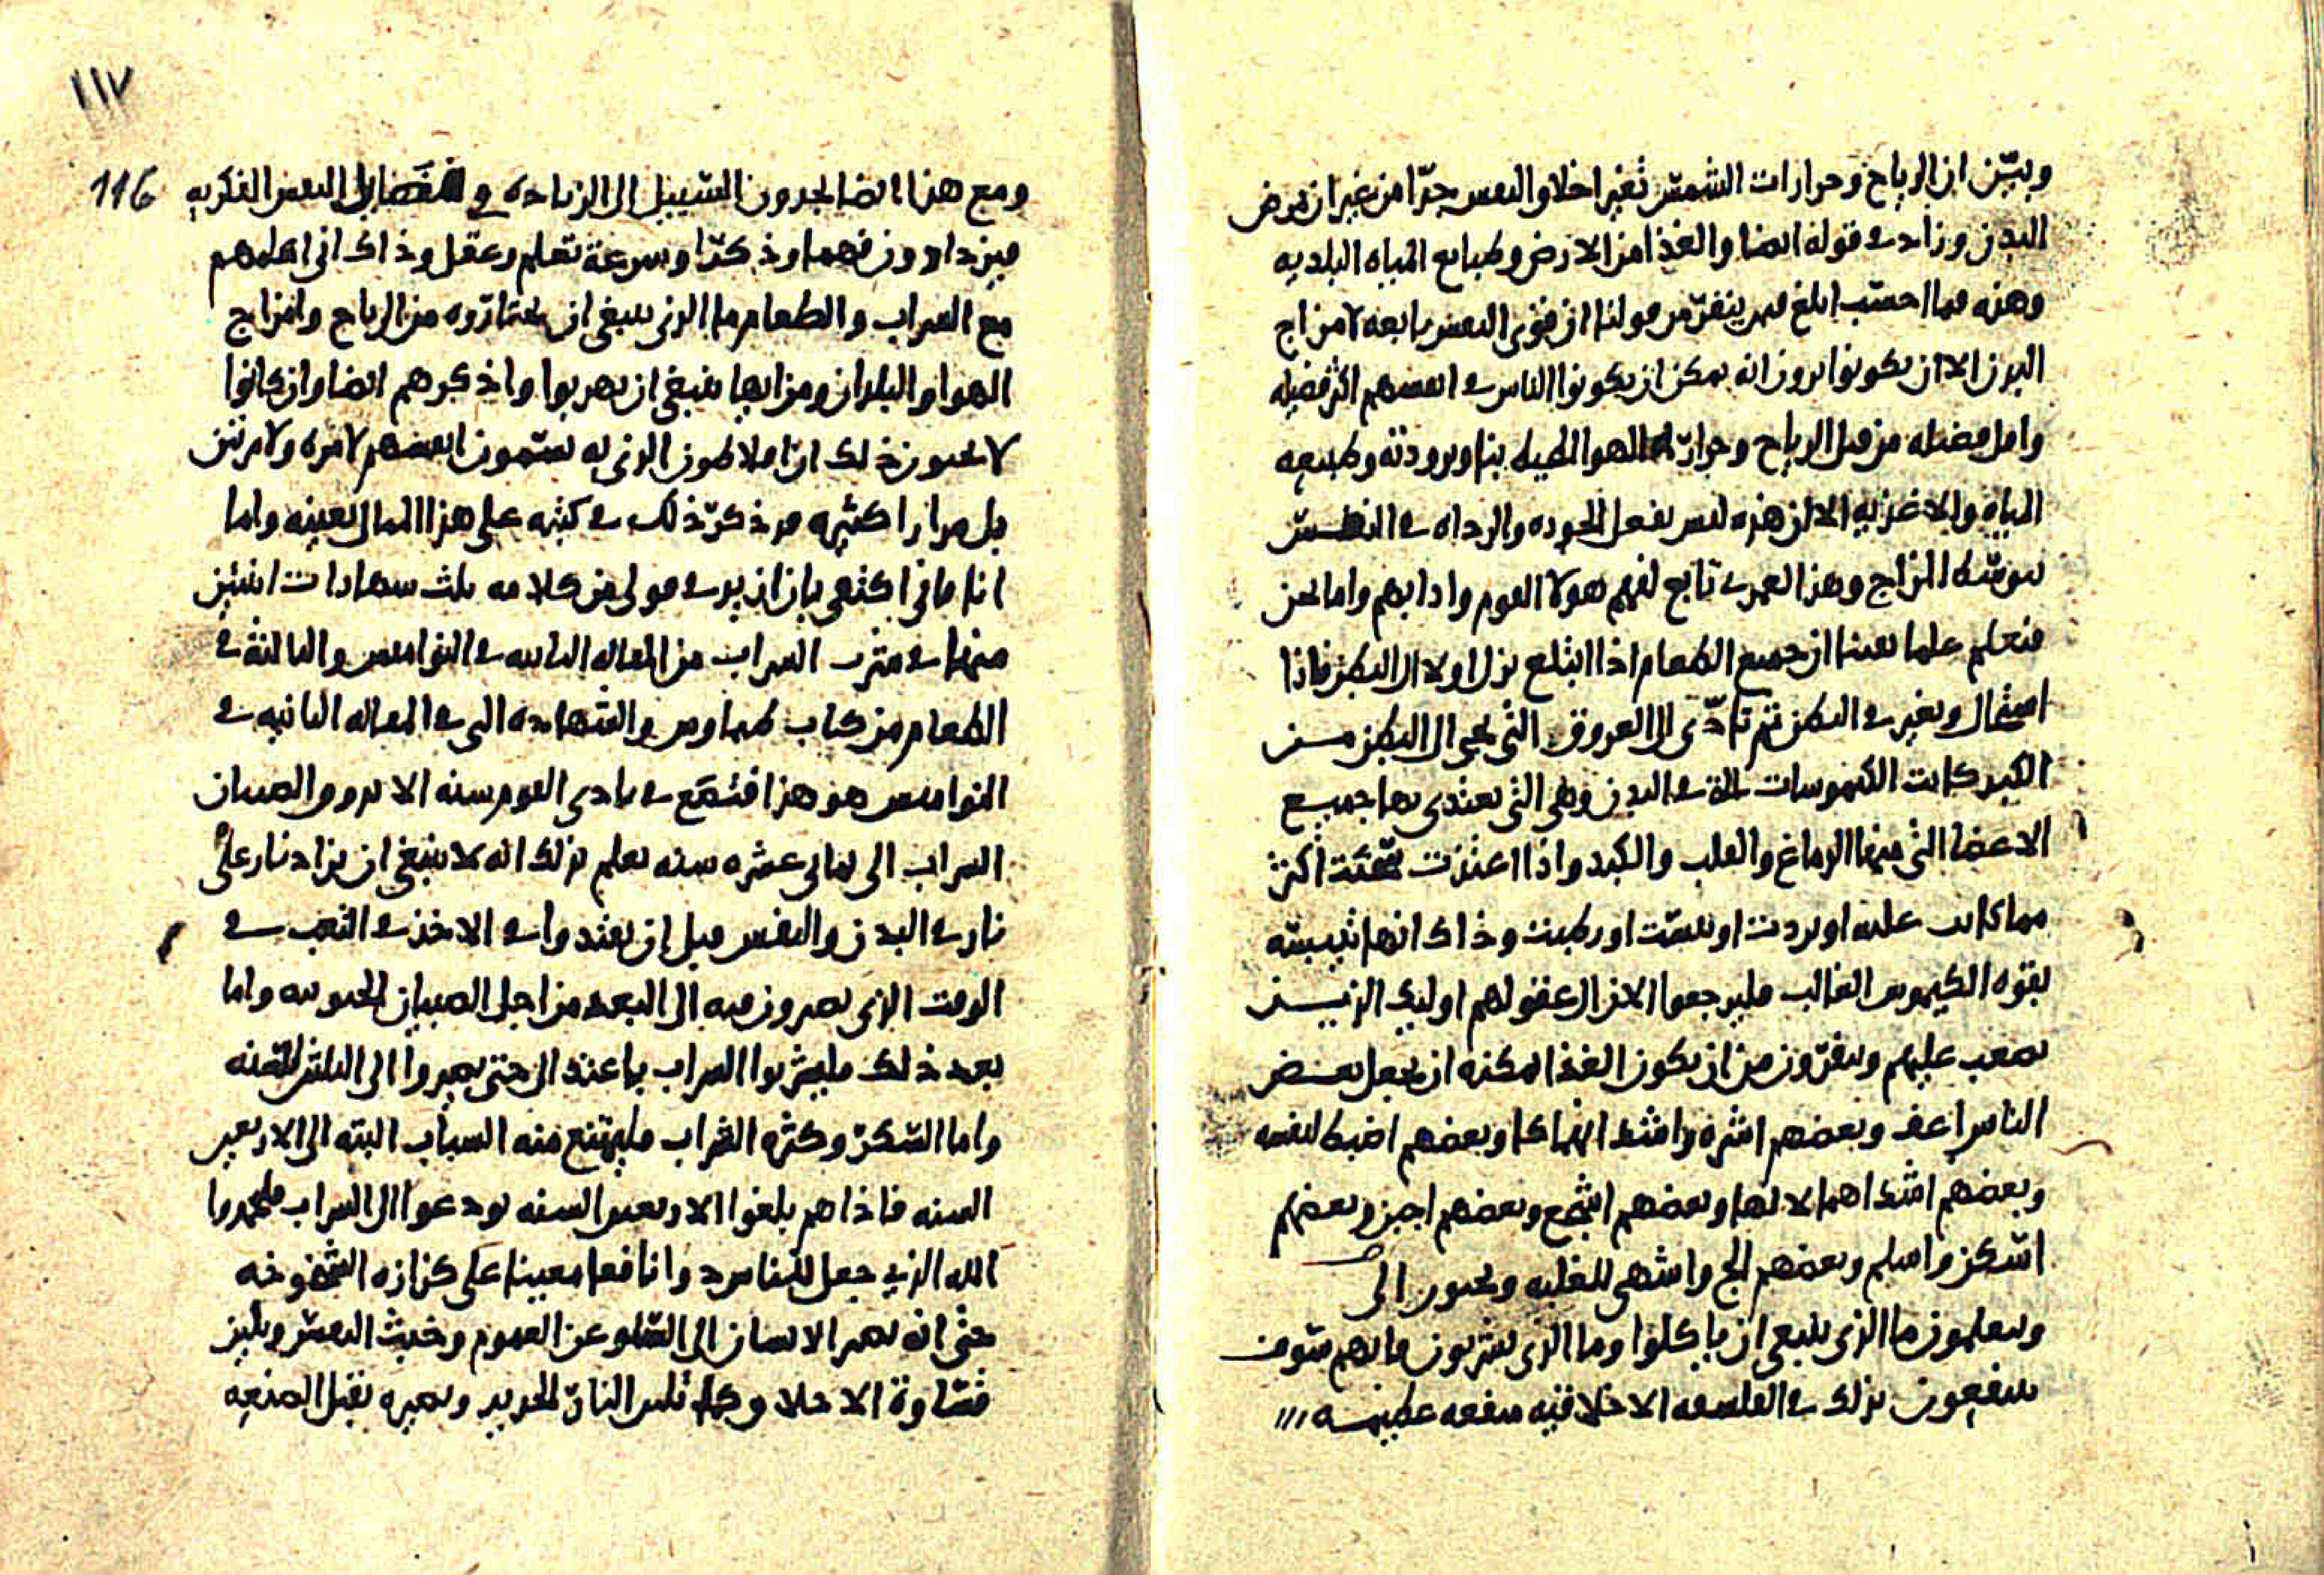 وبيّن ان الرياح وحرارات الشمس تغير اخلاق النفس جدّا من غير ان تمرض
البدن وزاد في قوله ايضا والغذا من الارض وطبايع المياه البلديه
وهذه فيما احسب ابلغ من قولنا ان قوى النفس تابعه لامزاج
البدن الا ان يكونوا يرون انه يمكن ان يكونوا الناس في انفسهم اكثر فضيله
واقل فضيله من قبل الرياح وحرارة الهوا المحيط بنا وبرودته وطبيعه
المياه والاغذيه الا ان هذه ليس تفعل الجوده والرداه في النفس
بوسط المزاج وهذا العمري تابع لفهم هولا القوم وادابهم واما نحن
فنعلم علما يقينا ان جميع الطعام اذا ابتلع نزل اولا الى البطن فاذا
استحال وتغير في البطن ثم تادّى الى العروق التي تجي الى البطن من
الكبد كانت الكيموسات في البدن وهي التي يغتذى بها جميع
الاعضا التي منها الدماغ والقلب والكبد واذا اغتذت سخنت اكثر
مما كانت عليه او بردت او يبست او رطبت وذاك انها شبيهه
بقوه الكيموس الغالب فليرجعوا الان الى عقولهم اوليك الذين
يصعب عليهم ويفرّون من ان يكون الغذا يمكنه ان يجعل بعض
الناس اعف وبعضهم اشره واشد انهماكا وبعضهم اضبط لنفسه
وبعضهم اشد اهمالا لها وبعضهم اشجع وبعضهم اجبن وبعضهم
اسكن واسلم وبعضهم الج واشهى للغلبه ويجيون الى
ويتعلمون ما الذي ينبغي ان ياكلوا وما الذي يشربون فانهم سوف
ينتفعون بذلك في الفلسفه الاخلاقيه منفعه عظيمه
١١٧
116
ومع هذا ايضا يجدون السبيل الى الزياده في فضايل النفس الفكريه
فيزدادون فهما وذكرا وسرعة تعلم وعقل وذاك اني اعلمهم
مع الشراب والطعام ما الذي ينبغي ان يختاروه من الرياح وامزاج
الهوا والبلدان ومن ايها ينبغي ان يهربوا واذكرهم ايضا وان كانوا
لا يحبون ذلك انّ افلاطون الذي له يسمون انفسهم لا مره ولا مرتين
بل مرارا كثيره قد ذكر ذلك في كتبه على هذا المثال بعينه واما
انا فاني اكتفي بان ازيد في قولي من كلامه ثلث شهادات اثنين
منها في شرب الشراب من المقاله الثانيه في النواميس والثالثة في
الطعام من كتاب طيماوس والشهاده التي في المقاله الثانيه في
النواميس هو هذا فنضع في بادى القوم سنه الا يذوق الصبيان
الشراب الى ثماني عشره سنه نعلم بذلك انه لا ينبغي ان يزاد نار على
نار في البدن والنفس قبل ان يغتدوا في الاخذ في التعب في
الوقت الذي يصيرون فيه الى التعب من اجل الصبيان المجنونه واما
بعد ذلك فليشربوا الشراب باعتدال حتى يصيروا الى الثلثين سنه
واما السكر وكثره الشراب فليمتنع منه الشباب البته الى الاربعين
السنه فاذا هم بلغوا الاربعين السنه يودعوا الى الشراب فليحمدوا
الله الذي جعل للناس دوا نافعا معينا على كزازه الشيخوخه
حتى انه يصير الانسان الى السلو عن الغموم وخبث النفس وتلين
قساوة الاخلاق كما تلين النار الحديد ويصيره يقبل الصنعه